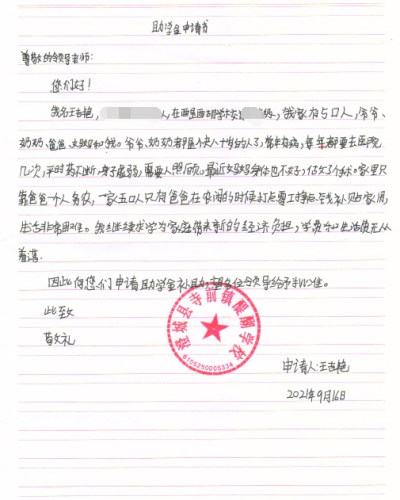 助学金申请书
尊敬的领导老师:
您们好!
我名王吉艳, 人,在 我家有5口人,爷爷、
奶奶、爸爸、妈妈和我。爷爷、奶奶都是快八十岁的人了,常年有病,每年都要去医院
几次,平时药不断,身子虚弱,需要人照顾。最近妈妈身体也不好,做了个手术。家里只
靠爸爸一个人务农,一家五口人只有爸爸在农闲的时候打点零工挣钱补贴家用,
生活非常困难。我继续求学为家庭带来新的经济负担,学费和生活费无从
着落。
因此向您们申请助学金补助,望各位领导给予批准。
此致
敬礼
澄城县寺前镇醍醐学校
6105250005334
申请人:王吉艳
2021年9月16日